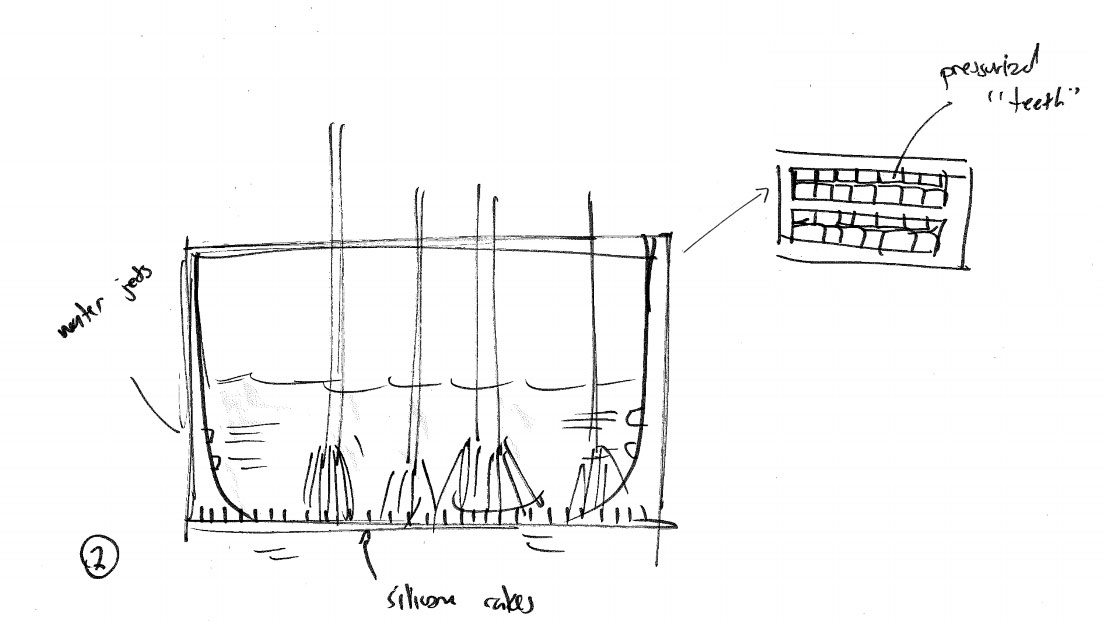 pressurized
"teeth"
water jets
2
silicone